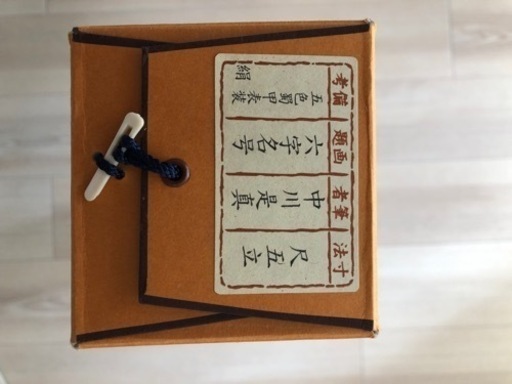 寸法
尺五立
筆者
中川是真
画題
六字名号
備考
五色蜀甲表装
絹